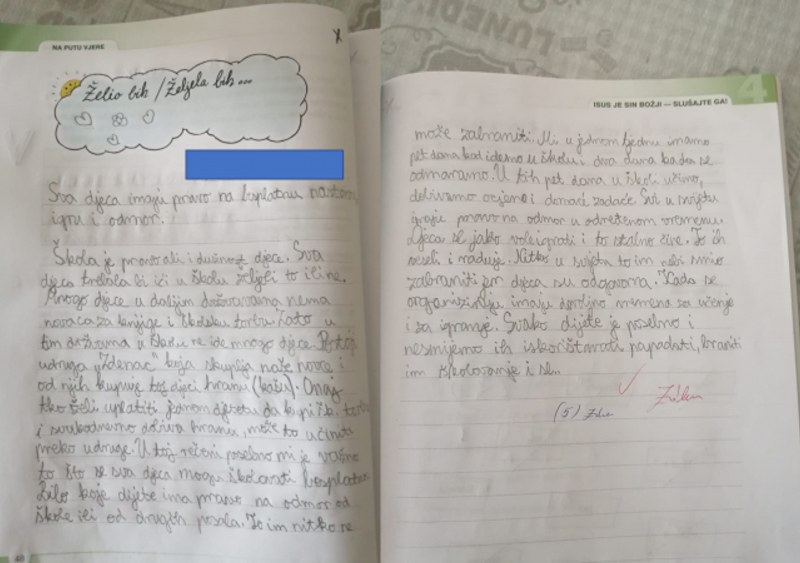 NA PUTU VJERE
x
Želio bih / Željela bih...
Sva djeca imaju pravo na besplatnu nastavu,
igru i odmor.
Škola je pravo ali i dužnost djece. Sva
djeca trebala bi ići u školu željeli to ili ne.
Mnogo djece u daljim državama nema
novaca za knjige i školsku torbu. Zato u
tim državama u školu ne ide mnogo djece. Postoji
udruga "Zdenac" koja skuplja naše novce i
od njih kupuje toj djeci hranu (kašu). Onaj
tko želi uplatiti jednom djetetu da kupi šk. torbu
i svakodnevno dobiva hranu, može to učiniti
preko udruge. U toj rečeni posebno mi je važno
to što se sva djeca mogu školovati besplatno
Bilo koje dijete ima pravo na odmor od
škole ili od drugih posala. To im nitko ne
40
4
ISUS JE SIN BOŽJI — SLUŠAJTE GA!
može zabraniti. Mi u jednom tjednu imamo
pet dana kad idemo u školu i dva dana kada se
odmaramo. U tih pet dana u školi učimo,
dobivamo ocjene i domaće zadaće. Svi u svijetu
imaju pravo na odmor u određenom vremenu.
Djeca se jako vole igrati i to stalno žive. To ih
veseli i raduje. Nitko u svijetu to im nebi smio
zabraniti jer djeca su odgovorna. Kada se
organiziraju imaju dovoljno vremena za učenje
i za igranje. Svako dijete je posebno i
nesmijemo ih iskorištavati, napadati, braniti
im školovanje i sl.
(5)
LUNEDI